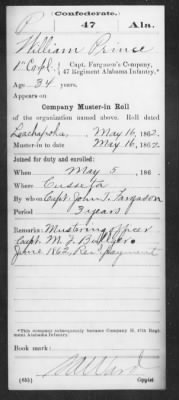 Confederate.
P 47 Ala.
William Prince
1" Corpl, Capt. Ferguson's Company,
47 Regiment Alabama Infantry.*
Age 34 years.
Appears on
Company Muster-in Roll
of the organization named above. Roll dated
Loachapoka, May 16, 1862.
Muster-in to date May 16, 1862.
Joined for duty and enrolled:
When May 5, 186
Where Cusseta
By whom Capt. John T. Fargason
Period 3 years
Remarks: Mustering officer
Capt. M. J. Bulger
June 1862
*This company subsequently became Company H, 47th Regiment Alabama Infantry.
Book mark:
Ward
(655) Copyist.